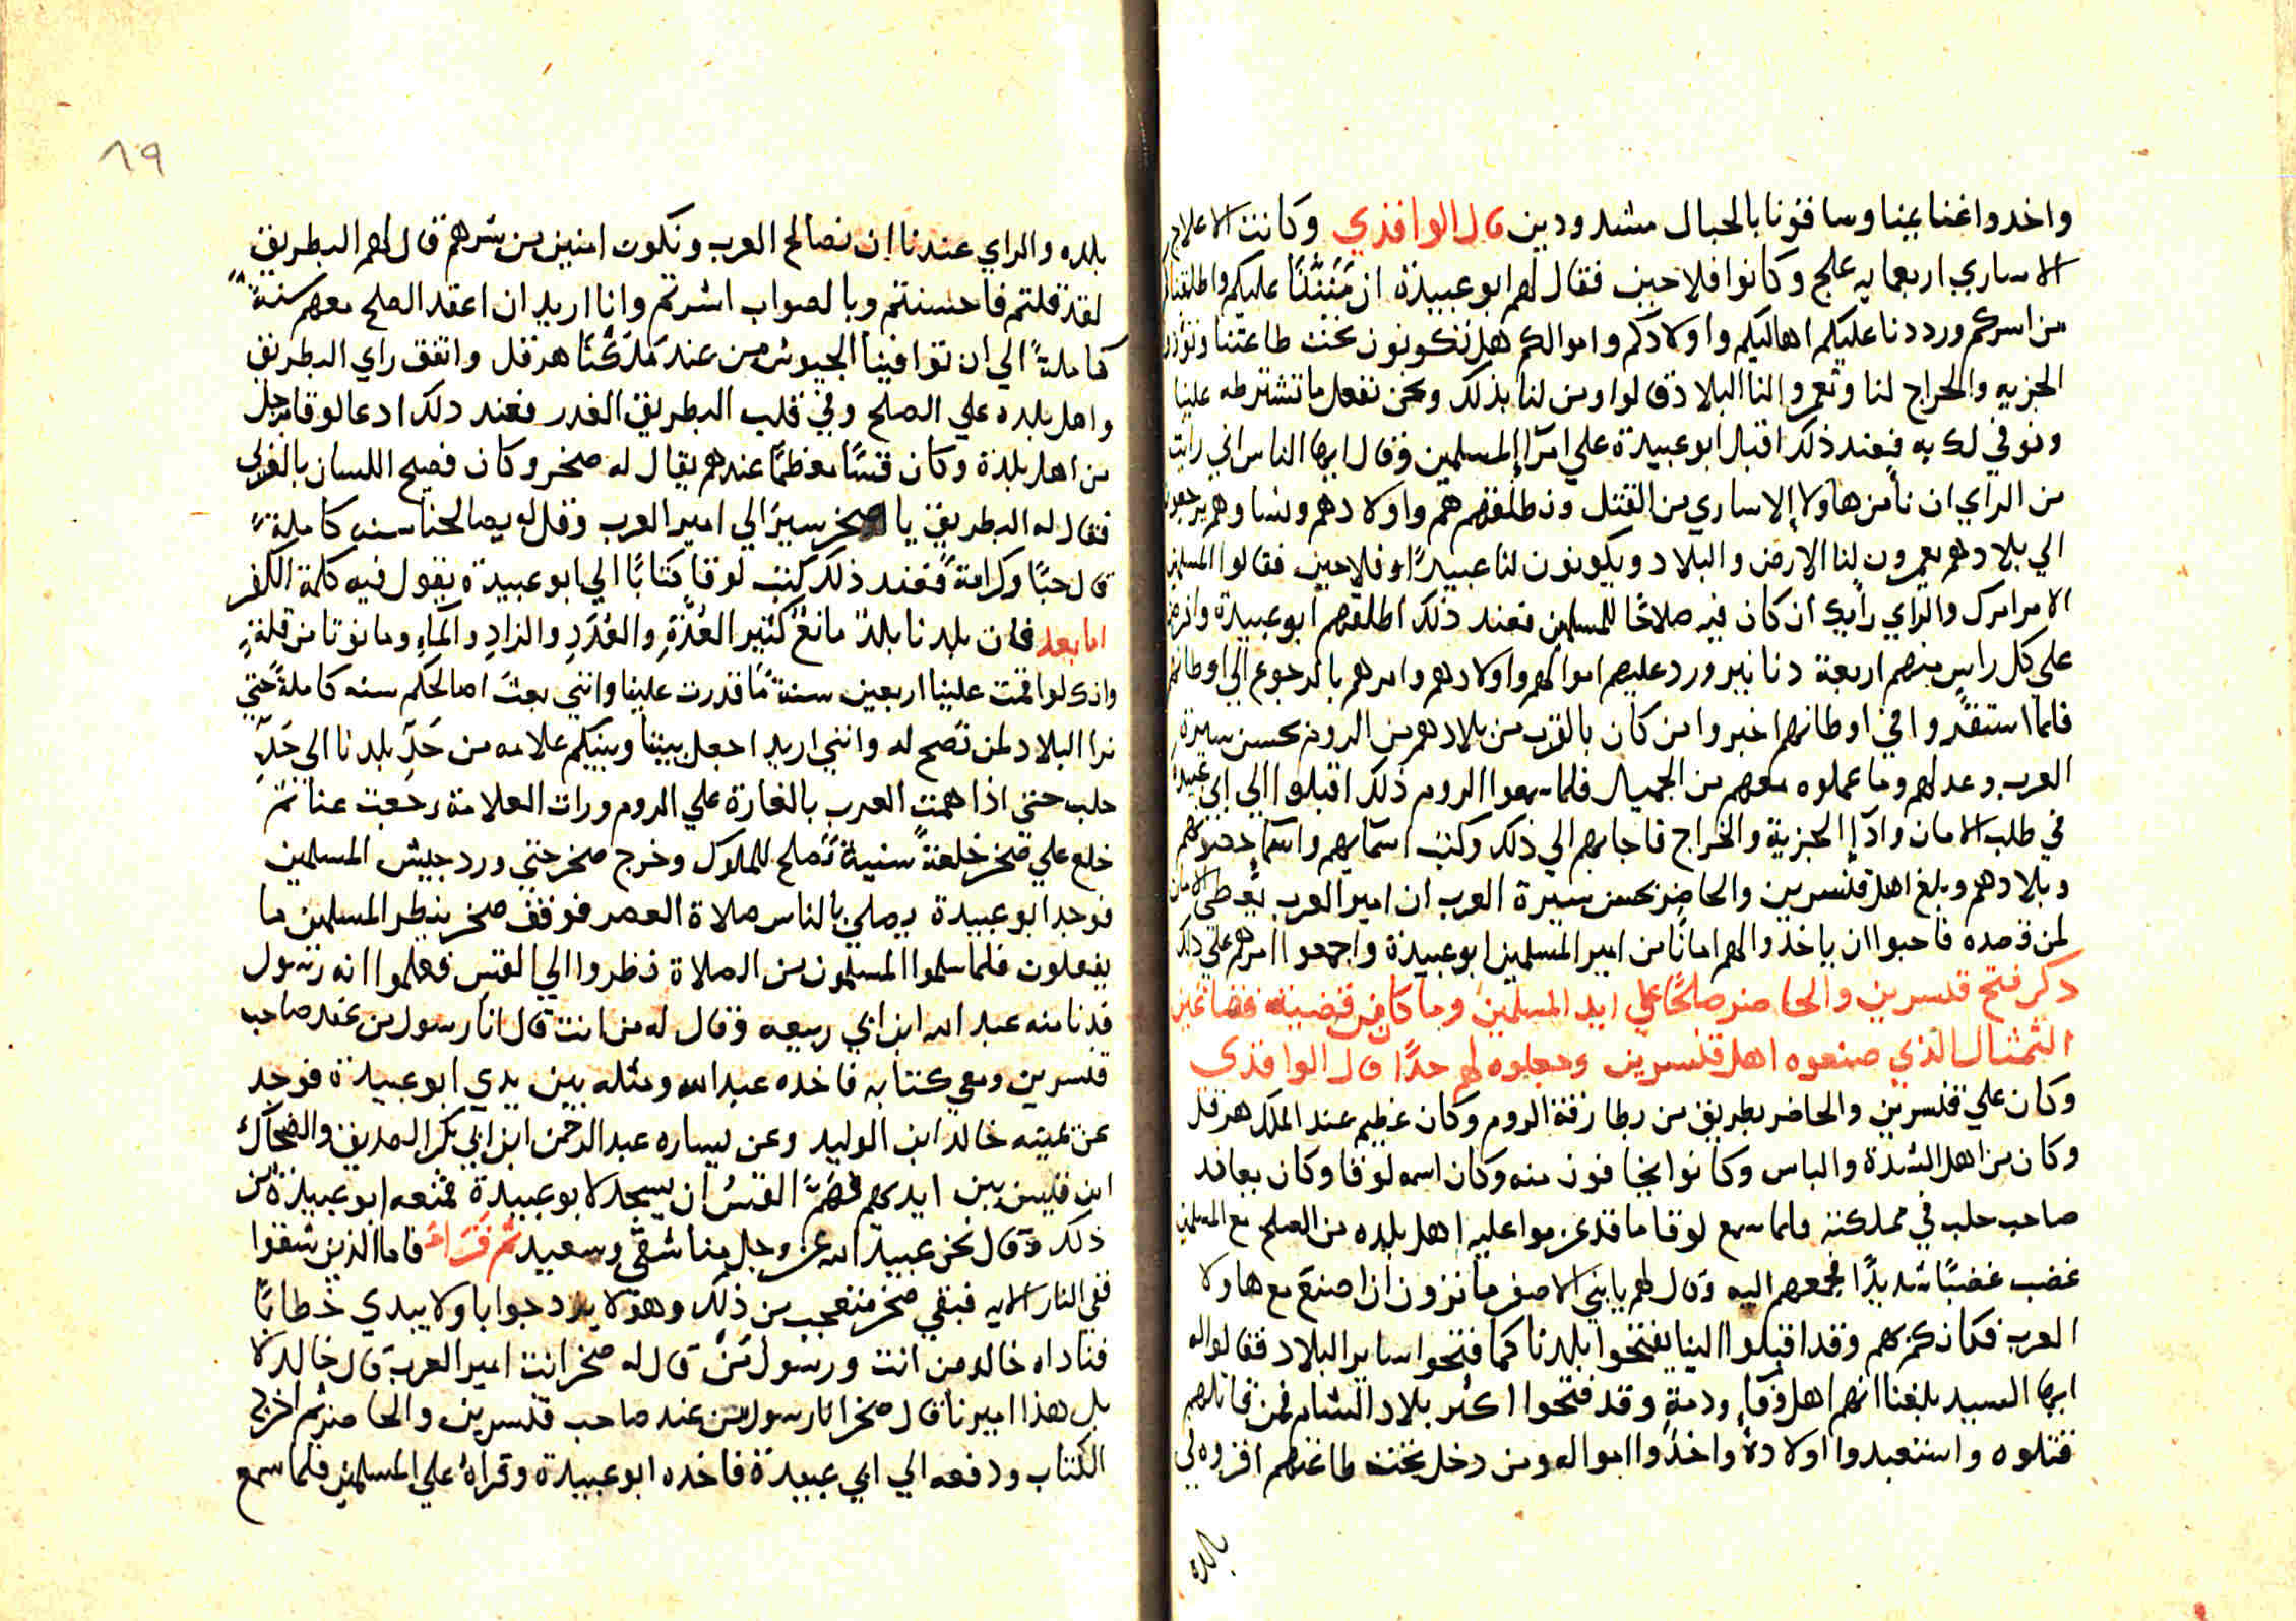 واخدوا غنايمنا وساقونا بالحبال مشدودين قال الواقدي وكانت الاعلاج
الاساري اربعمايه علج وكانوا فلاحين فقال لهم ابو عبيدة ان مَنَنَّنَا عليكم واطلقناكم
من اسركم ورددنا عليكم اهاليكم واولادكم واموالكم هل تكونون تحت طاعتنا وتؤدوا
الجزيه والخراج لنا وتعمروا لنا البلاد قالوا ومن لنا بذلك ونحن نفعل ما تشترطه علينا
ونوفي لك به فعند ذلك اقبل ابو عبيدة علي امرآ المسلمين وقال ايها الناس اني رايت
من الراي ان نأمن هاولا إلاساري من القتل ونطلقهم هم واولادهم ونساوهم يرجعون
الي بلادهم يعمرون لنا الارض والبلاد ويكونون لنا عبيدًا وفلاحين فقالوا المسلمين
الامر امرك والراي رايك ان كان فيه صلاحًا للمسلمين فعند ذلك اطلقهم ابو عبيدة وافرض
علي كل راس منهم اربعة دنانير ورد عليهم اموالهم واولادهم وامرهم بالرجوع الي اوطانهم
فلما استقروا في اوطانهم اخبروا من كان بالقرب من بلادهم من الروم بحسن سيرة
العرب وعدلهم وما عملوه معهم من الجميل فلما سمعوا الروم ذلك اقبلوا الي ابي عبيدة
في طلب الامان وادآ الجزية والخراج فاجابهم الي ذلك وكتب اسمايهم واسمآ حصونهم
وبلادهم وبلغ اهل قنسرين والحاضر بحسن سيرة العرب ان امير العرب يُعطي الامان
لمن قصده فاحبوا ان ياخذوا لهم امانًا من امير المسلمين ابو عبيدة واجمعوا امرهم علي ذلك
ذكر فتح قنسرين والحاضر صلحًا علي ايد المسلمين وما كان من قضية فضا عين
التمثال الذي صنعوه اهل قنسرين وجعلوه لهم حدًا قال الواقدي
وكان علي قنسرين والحاضر بطريق من بطارقة الروم وكان عظيم عند الملك هرقل
وكان من اهل الشدة والباس وكانوا يخافون منه وكان اسمه لوقا وكان يعاند
صاحب حلب في مملكته فلما سمع لوقا ما قد عزموا عليه اهل بلده من الصلح مع المسلمين
غضب غضبًا شديدًا فجمعهم اليه وقال لهم يا بني الاصفر ما تروون ان اصنع مع هاولا
العرب فكانكم بهم وقد اقبلوا الينا يفتحوا بلدنا كما فتحوا ساير البلاد فقالوا له
ايها السيد بلغنا انهم اهل وفآءٍ وذمةٍ وقد فتحوا اكثر بلاد الشام فمن قاتلهم
قتلوه واستعبدوا اولادهُ واخذوا امواله ومن دخل تحت طاعتهم اقروه في
بلده
١٩
بلده والراي عندنا ان نصالح العرب ونكون امنين من شرهم قال لهم البطريق
لقد قلتم فاحسنتم وبالصواب اشرتم وانا اريد ان اعقد الصلح معهم سنةً
كاملةً الي ان توافينا الجيوش من عند مَلِكُنا هرقل واتفق راي البطريق
واهل بلده علي الصلح وفي قلب البطريق الغدر فعند دلك ادعا لوقا برجل
من اهل بلدة وكان قسًا معظمًا عندهم يقال له صخر وكان فصيح اللسان بالعربي
فقال له البطريق يا صخر سير الي امير العرب وقل له يصالحنا سنه كاملةً
قال حبًا وكرامةً فعند ذلك كتب لوقا كتابًا الي ابو عبيدة يقول فيه كلمة الكفر
اما بعد فان بلدنا بلدٌ مانعٌ كثير العُدَّةِ والعُدَدِ والزادِ والمآءِ وما نوتا من قلةٍ
وانك لو اقمت علينا اربعين سنةً ما قدرت علينا وانني بعثت اصالحكم سنه كاملةً حتي
نرا البلاد لمن تصح له وانني اريد اجعل بيننا وبينكم علامه من حَدِّ بلدنا الي حَدِّ
حلب حتي اذا همت العرب بالغارة علي الروم ورات العلامة رجعت عنا ثم
خلع علي صخر خلعةً سنيةً تصلح للملوك وخرج صخر حتي ورد جيش المسلمين
فوجد ابو عبيدة يصلي بالناس صلاة العصر فوقف صخر ينظر المسلمين ما
يفعلون فلما سلموا المسلمون من الصلاة نظروا الي القس فعلموا انه رسول
فدنا منه عبد الله ابن ابي ربيعه وقال له من انت قال انا رسول من عند صاحب
قنسرين ومعي كتابه فاخده عبد الله ومثله بين يدي ابو عبيدة فوجد
عن يمينه خالد ابن الوليد وعن يساره عبد الرحمن ابن ابي بكر الصديق والضحاك
ابن قيس بين ايديهم فهَمَّ القسُ ان يسجد لابو عبيدة فمنعه ابو عبيدة من
ذلك وقال نحن عبيد الله عز وجل منا شقي وسعيد ثم قَرَاءَ فاما الذين شقوا
ففي النار الايه فبقي صخر متعجب من ذلك وهو لا يرد جوابا ولا يبدي خطابًا
فناداه خالد من انت ورسول مَنْ قال له صخر انت امير العرب قال خالد لا
بل هذا اميرنا قال صخر انا رسول من عند صاحب قنسرين والحاضر ثم اخرج
الكتاب ودفعه الي ابي عبيدة فاخده ابو عبيدة وقراهُ علي المسلمين فلما سمع